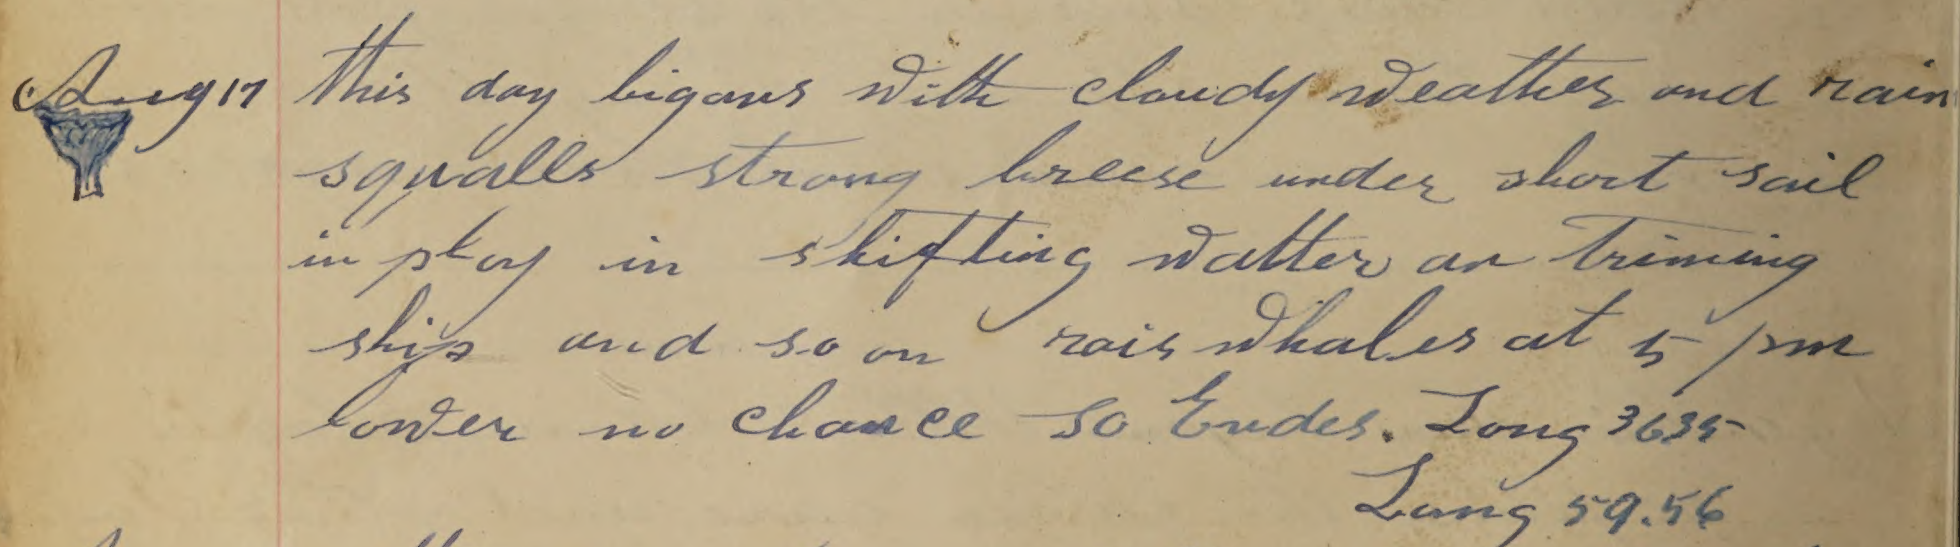 Aug 17 this day bigans with cloudy weather and rain
squalls strong breese under short sail
in ploy in shifting watter an triming
ship and so on rais whales at 5 pm
lower no chance so Endes. Long 3635
Long 59.56